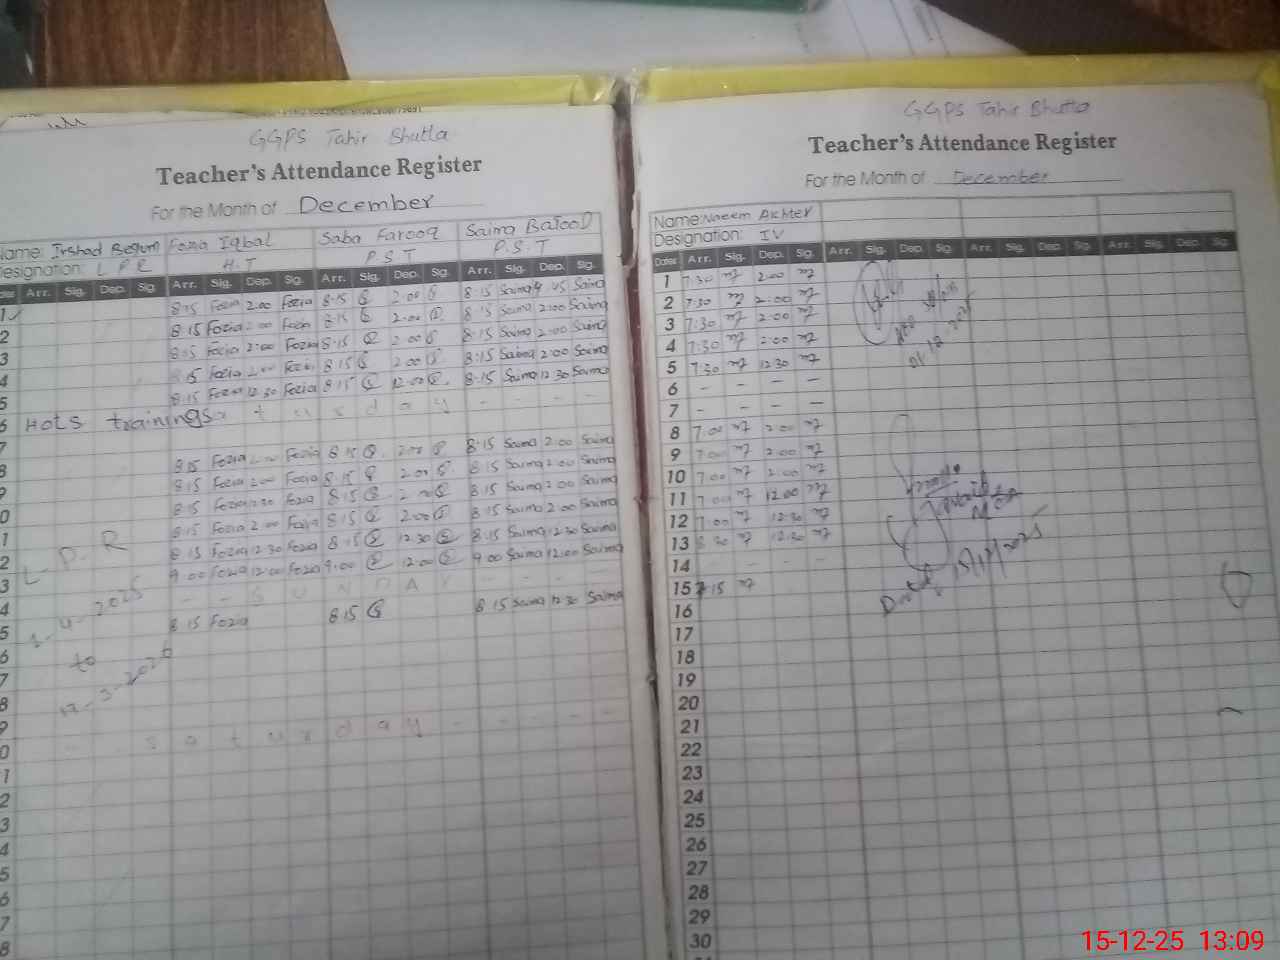 GGPS Tahir Bhutla
Teacher's Attendance Register
For the Month of December
Name: Irshad Begum Fozia Iqbal Saba Farooq Saima Batool
Designation: L P R H.T P.S.T P.S.T
Dates Arr. Sig. Dep. Sig. Arr. Sig. Dep. Sig. Arr. Sig. Dep. Sig. Arr. Sig. Dep. Sig.
1 8:15 Fozia 2:00 Fozia 8:15 2:00 8:15 Saima Saima
2 8:15 Fozia 2:00 Fozia 8:15 2:00 8:15 Saima 2:00 Saima
3 8:15 Fozia 2:00 Fozia 8:15 2:00 8:15 Saima 2:00 Saima
4 8:15 Fozia 2:00 Fozia 8:15 2:00 8:15 Saima 2:00 Saima
5 8:15 Fozia 12:30 Fozia 8:15 12:00 8:15 Saima 12:30 Saima
6 Hots trainings a t u r d a y - - - -
7
8 8:15 Fozia Fozia 8:15 2:00 8:15 Saima 2:00 Saima
9 8:15 Fozia 2:00 Fozia 8:15 2:00 8:15 Saima 2:00 Saima
0 8:15 Fozia Fozia 8:15 2:00 8:15 Saima 2:00 Saima
1 8:15 Fozia 2:00 Fozia 8:15 2:00 8:15 Saima 2:00 Saima
2 L.P.R 8:15 Fozia 12:30 Fozia 8:15 12:30 8:15 Saima 12:30 Saima
3 9:00 Fozia 12:00 Fozia 9:00 12:00 9:00 Saima 12:00 Saima
4 - - S U N D A Y - - - -
5 8:15 Fozia 8:15 8:15 Saima 12:30 Saima
6 to
7
8 17-3-2026
9
0 s a t u r d a y - - - - -
1
2
3
4
5
6
7
8
GGPS Tahir Bhutta
Teacher's Attendance Register
For the Month of December
Name: Naeem Akhter
Designation: IV
Dates Arr. Sig. Dep. Sig. Arr. Sig. Dep. Sig. Arr. Sig. Dep. Sig. Arr. Sig. Dep. Sig.
1 7:30 2:00
2 7:30 2:00
3 7:30 2:00
4 7:30 2:00
5 7:30 12:30
6 - - - -
7 - - - -
8 7:00 2:00
9 7:00 2:00
10 7:00 2:00
11 7:00 12:00
12 7:00 12:30
13 8:30 12:30
14 - - - -
15 7:15
16
17
18
19
20
21
22
23
24
25
26
27
28
29
30
MEA
15-12-25 13:09